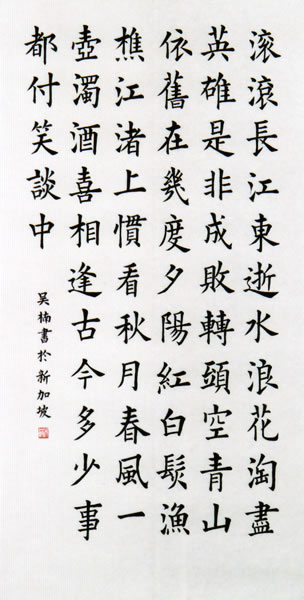 滾滾長江東逝水浪花淘盡
英雄是非成敗轉頭空青山
依舊在幾度夕陽紅白髮漁
樵江渚上慣看秋月春風一
壺濁酒喜相逢古今多少事
都付笑談中
吳楠書於新加坡